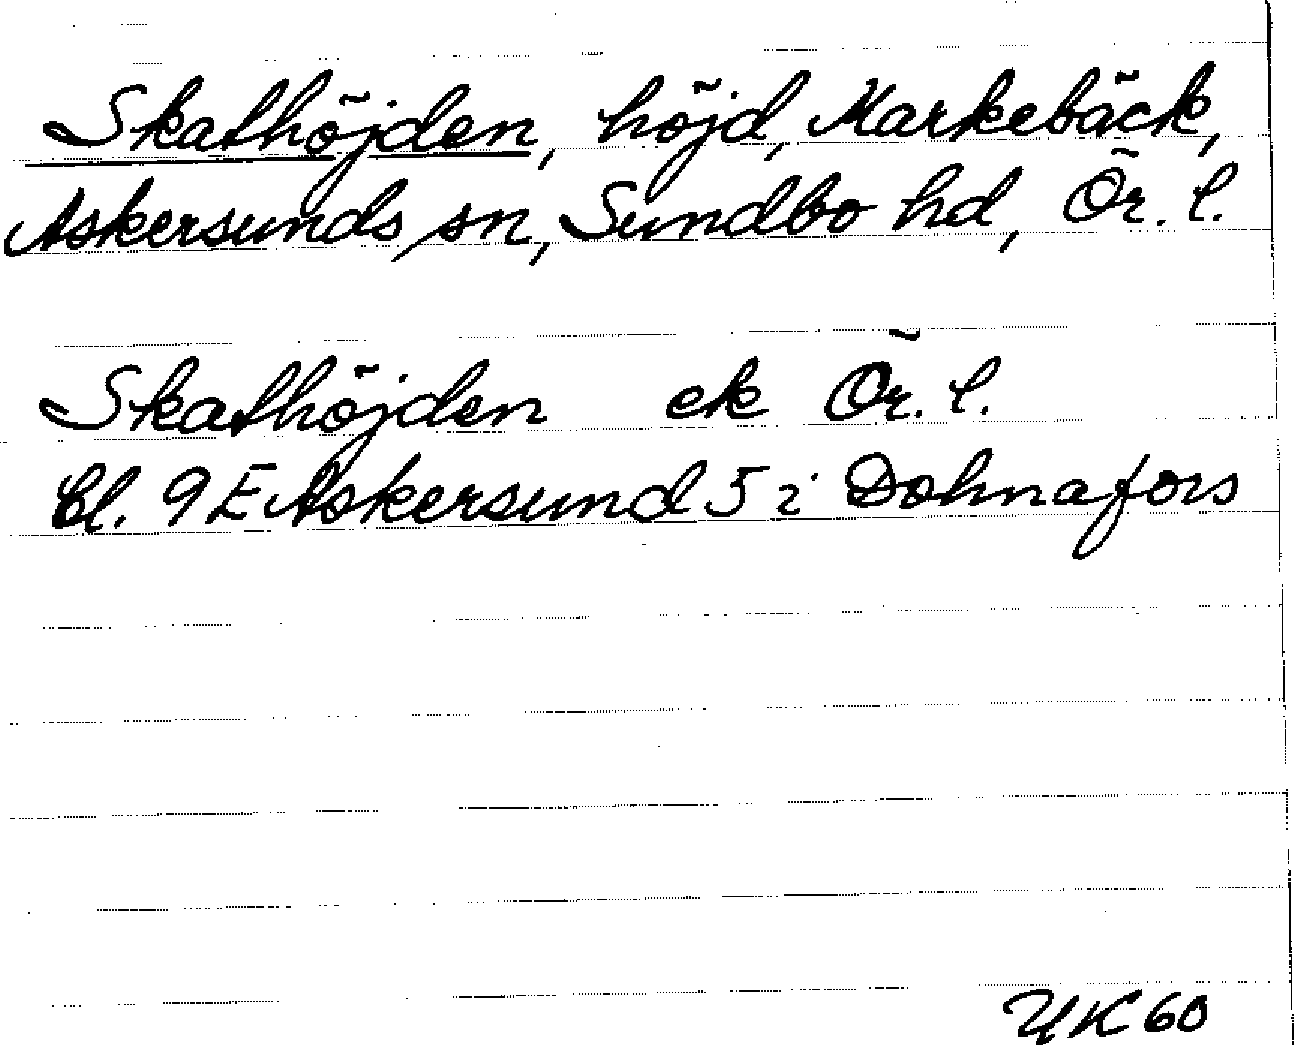 Skathöjden, höjd, Markebäck,
Askersunds sn, Sundbo hd, Ör. l.
Skathöjden ek Ör. l.
bl. 9 E Askersund 5 i Dohnafors
UK 60